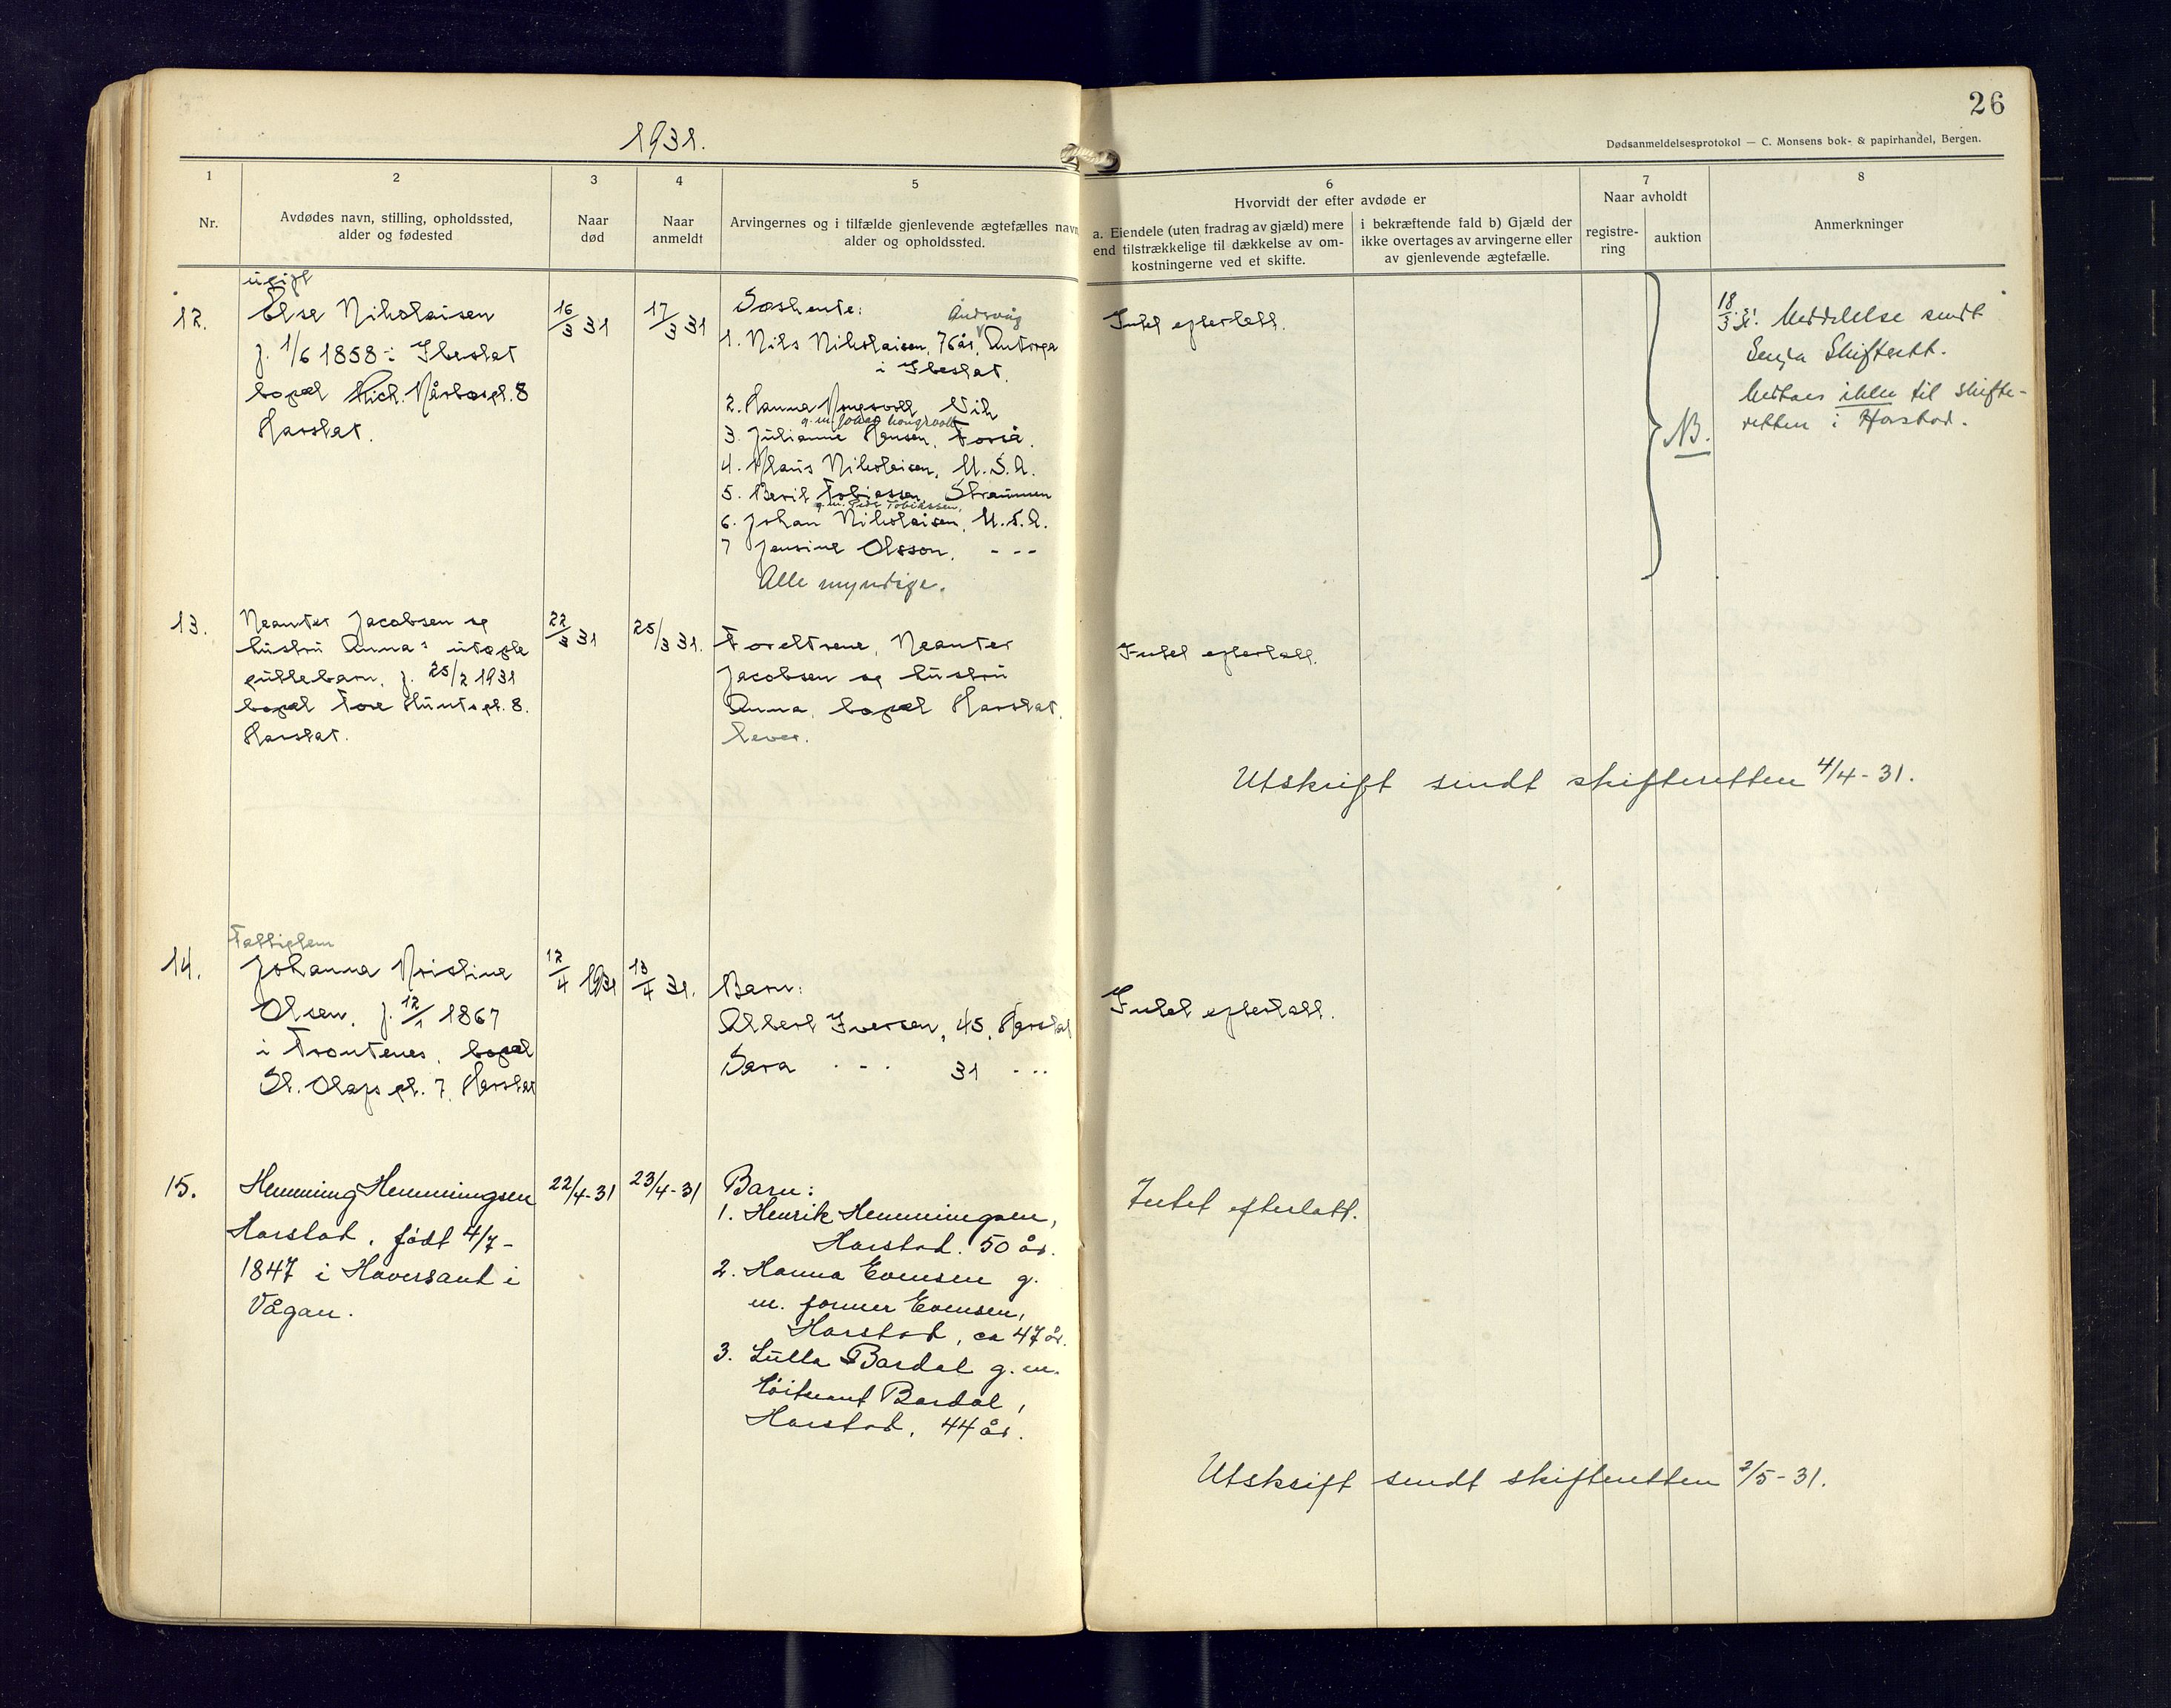 26
1931.
Dødsanmeldelsesprotokol — C. Monsens bok- & papirhandel, Bergen.
1
2
3
4
5
6
7
8
Nr.
Avdødes navn, stilling, opholdssted,
alder og fødested
Naar
død
Naar
anmeldt
Arvingernes og i tilfælde gjenlevende ægtefælles navn
alder og opholdssted.
Hvorvidt der efter avdøde er
a. Eiendele (uten fradrag av gjæld) mere
end tilstrækkelige til dækkelse av om-
kostningerne ved et skifte.
i bekræftende fald b) Gjæld der
ikke overtages av arvingerne eller
av gjenlevende ægtefælle.
Naar avholdt
registre-
ring
auktion
Anmerkninger
12.
ugift
Else Nikolaisen
f. 1/6 1858 i Ibestad
bopæl Rich. Kårbøsgt. 8
Harstad.
16/3 31
17/3 31
Søskente:
Åndervåg
1. Nils Nikolaisen, 76 år,
i Ibestad.
2. Hanna Kongsvoll, Vik
g. m. Johan Kongsvoll
3. Julianne Hansen, Forså.
4. Klaus Nikolaisen, U.S.A.
5. Berit Tobiassen, Straumen
g. m. Peder Tobiassen,
6. Johan Nikolaisen, U.S.A.
7 Jensine Olsson, - - -
Alle myndige.
Intet efterlatt.
NB.
18/3.31. Meddelelse sendt
Senja Skifterett.
Medtaes ikke til skifte-
retten i Harstad.
13.
Neanter Jacobsen og
hustru Anna's udøpte
guttebarn, f. 25/2 1931
bopæl Tore Hundsgt. 8.
Harstad.
22/3 31
25/3 31.
Foreldrene, Neanter
Jacobsen og hustru
Anna, bopæl Harstad,
lever.
Intet efterlatt.
Utskrift sendt skifteretten 4/4-31.
14.
Fattiglem
Johanna Kristine
Olsen, f. 12/1 1867
i Trondenes, bopæl
St. Olafsgt. 7, Harstad
12/4 1931
13/4 31.
Barn:
Albert Iversen, 45, Harstad
Sara - - - 31 - - -
Intet efterlatt.
15.
Hemming Hemmingsen
Harstad, født 4/7-
1847 i Haversand i
Vågan.
22/4-31
23/4-31
Barn:
1. Henrik Hemmingsen,
Harstad. 50 år.
2. Hanna Evensen g.
m. former Evensen,
Harstad, ca 47 år.
3. Lulla Bardal g. m.
løitnant Bardal,
Harstad, 44 år.
Intet efterlatt.
Utskrift sendt skifteretten 2/5-31.